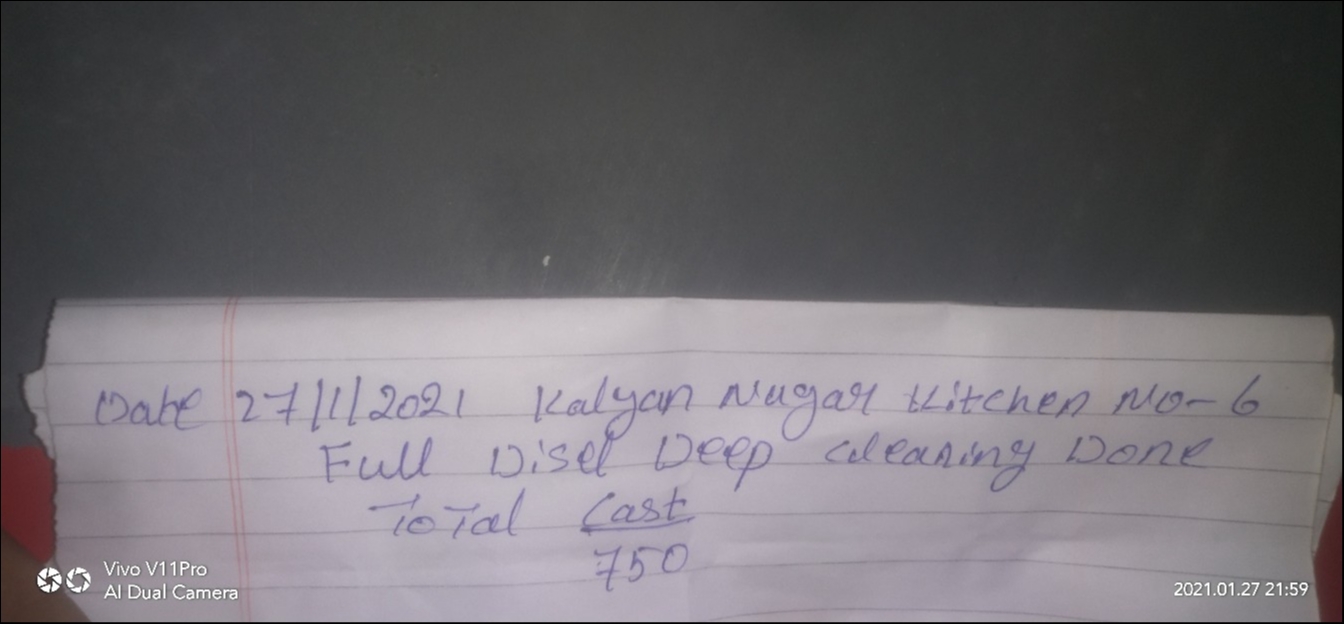 Date 27/1/2021 Kalyan Nagar Kitchen No-6
Full Disel Deep Cleaning Done
ToTal Cast
750
Vivo V11Pro
AI Dual Camera
2021.01.27 21:59